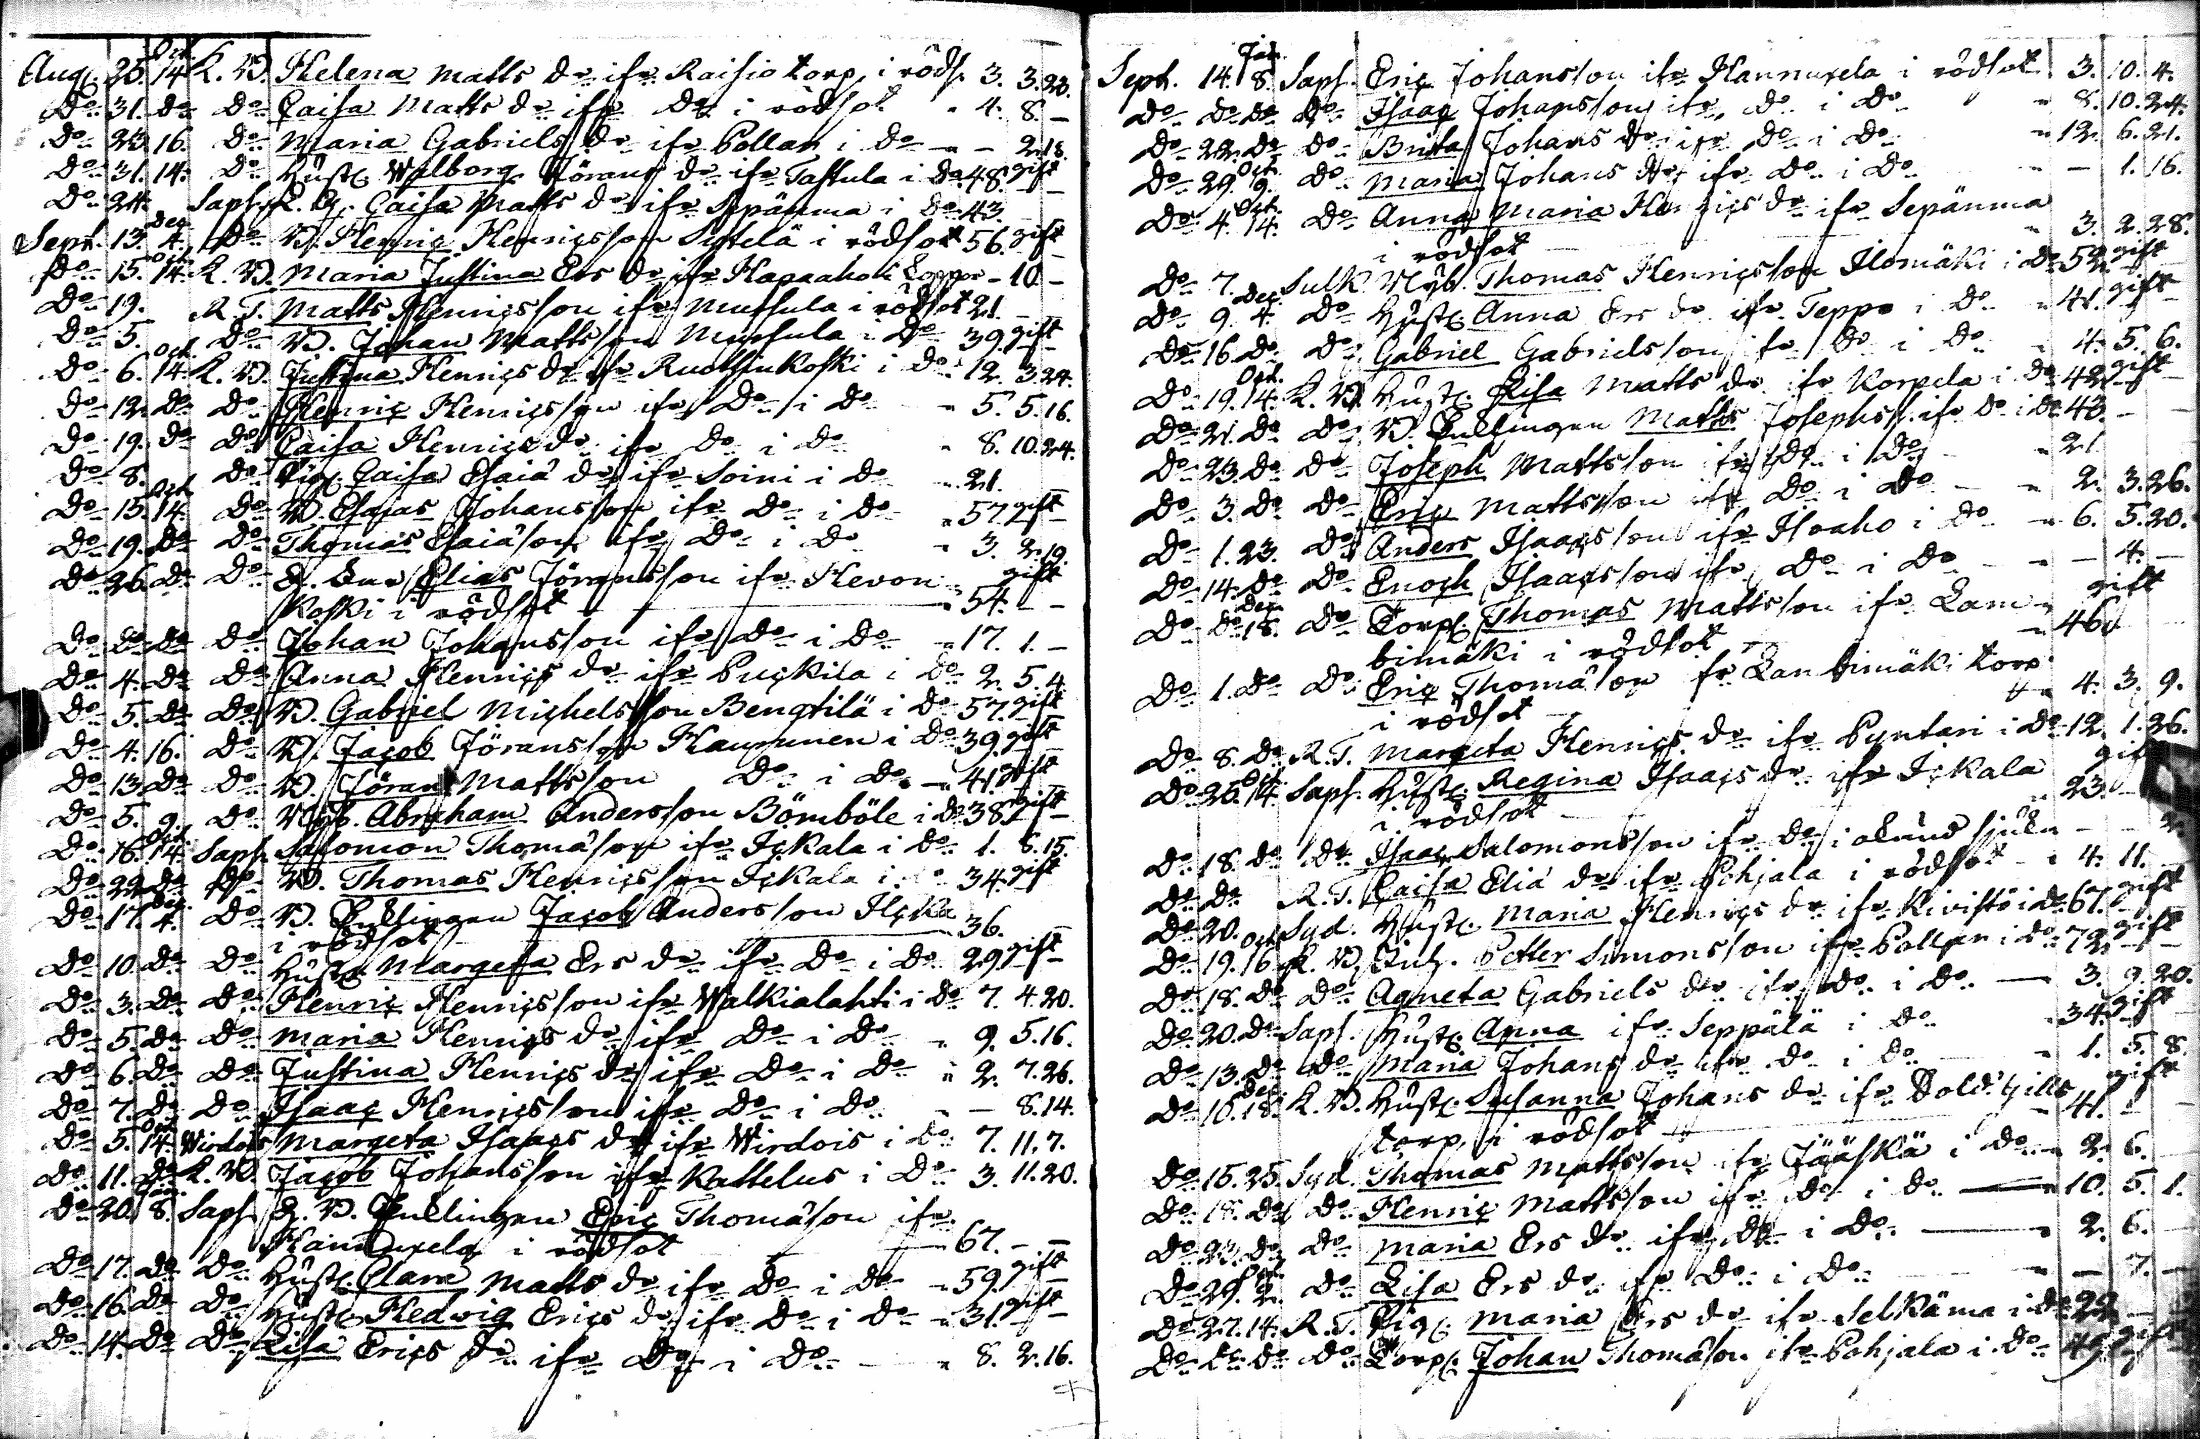 Aug. 25. Oct. 14 K. W. Helena Matts dr ifr. Raisio torp, i rödst. 3. 3. 23.
Do 31. do do Caisa Matts dr ifr do i rödsot 4. 8. –
Do 23. 16. do Maria Gabriels dr ifr Pollari i do – 2. 18.
Do 31. 14. do Hust. Walborg Jörans dr ifr Tastula i do 48. gift
Do 24. Saph. Caisa Matts dr ifr Sepänma i do 43.
Sept. 13. Dec. 4. do W. Henric Henricsson i rödsot 56. gift
Do 15. Oct. 14. K. W. Maria Justina Ers dr ifr – 10 –
Do 19. R. T. Matts Henricsson ifr Mussula i rödsot 21.
Do 5. do W. Johan Mattsson Mussula i do 39. gift
Do 6. Oct. 14. K. W. Justina Henrics dr ifr i do 12. 3. 24.
Do 12. do do Henric Henricsson ifr do i do 5. 5. 16.
Do 19. do do Caisa Henrics dr ifr do i do 8. 10. 24.
Do 8. do Pig. Caisa Esaiæ dr ifr Soini i do 21.
Do 15. Oct. 14. do W. Esaias Johansson ifr do i do 57. gift
Do 19. do do Thomas Esaiæson ifr do i do 3. 2. 19.
Do 26. do do Elias Jöransson ifr Hevon gift
koski i rödsot 54. – –
Do do do do Johan Johansson ifr do i do 17. 1. –
Do 4. do do Anna Henrics dr ifr Puckila i do 2. 5. 4.
Do 5. do do W. Gabriel Michelsson Bengtilä i do 57. gift
Do 4. 16. do W. Jacob Jöransson Haurunen i do 39. gift
Do 13. do do W. Jöran Mattsson do i do 41. gift
Do 5. 9. do Nyb. Abraham Andersson Bömböle i do 38. gift
Do 16. Oct. 14. Saph. Salomon Thomæson ifr Ickala i do 1. 6. 15.
Do 22. do do W. Thomas Henricsson Ickala i do 34. gift
Do 17. Dec. 4. do W. Enklingen Jacob Andersson Ilcka
i rödsot 36.
Do 10. do do Hust. Margeta Ers dr ifr do i do 29. gift
Do 3. do do Henric Henricsson ifr Walkialahti i do 7. 4. 20.
Do 5. do do Maria Henrics dr ifr do i do 9. 5. 16.
Do 6. do do Justina Henrics dr ifr do i do 2. 7. 26.
Do 7. do do Isaac Henricsson ifr do i do – 8. 14.
Do 5. Oct. 14. Wirdois Margeta Isaacs dr ifr Wirdois i do 7. 11. 7.
Do 11. do K. W. Jacob Johansson ifr Kattelus i do 3. 11. 20.
Do 20. Jan. 8. Saph. W. Enklingen Eric Thomæson ifr
Hannuxela i rödsot 67. – –
Do 17. do do Hust. Clara Matts dr ifr do i do 59. gift
Do 16. do do Hust. Hedvig Erics dr ifr do i do 31. gift
Do 14. do do Lisa Erics dr ifr do i do 8. 2. 16.
Sept. 14. Jan. 8. Saph. Eric Johansson ifr Hannuxela i rödsot 3. 10. 4.
Do do do do Isaac Johansson ifr do i do 8. 10. 24.
Do 22. do do Brita Johans dr ifr do i do 12. 6. 21.
Do 29. Oct. 9. do Maria Johans dr ifr do i do – 1. 16.
Do 4. Oct. 14. do Anna Maria Henrics dr ifr Sepänma
i rödsot 3. 2. 28.
Do 7. Sulk. Nyb. Thomas Henricsson Ilomäki i do 52. gift
Do 9. Dec. 4. do Hust. Anna Ers dr ifr Teppo i do 41. gift
Do 16. do do Gabriel Gabrielsson ifr do i do 4. 5. 6.
Do 19. Oct. 14. K. W. Hust. Lisa Matts dr ifr Korpela i do 42. gift
Do 21. do do W. Enklingen Matts Josephss. ifr do i do 43. – –
Do 23. do do Joseph Mattsson ifr do i do 21
Do 3. do do Eric Mattsson ifr do i do 2. 3. 26.
Do 1. 23. do Anders Isaacsson ifr Isoaho i do 6. 5. 20.
Do 14. do do Enoch Isaacsson ifr do i do – 4. –
Do do Dec. 18. do Torp. Thomas Mattsson ifr Lam gift
bimäki i rödsot 46.
Do 1. do do Eric Thomæson fr Lambimäki torp
i rödsot 4. 3. 9.
Do 8. do R. T. Margeta Henrics dr ifr Pyntari i do 12. 1. 26.
Do 25. Oct. 14. Saph. Hust. Regina Isaacs dr ifr Ickala gift
i rödsot 23.
Do 18. do do Isaac Salomonsson ifr do i okänd sjukd.
Do do R. T. Caisa Eliæ dr ifr Pohjala i rödsot 4. 11.
Do 20. Syd. Hust. Maria Henrics dr ifr Kivistö i do 67. gift
Do 19. Oct. 16. K. W. Inh. Petter Simonsson ifr Pollari i do 72. gift
Do 18. do do Agneta Gabriels dr ifr do i do 3. 9. 20.
Do 20. do Saph. Hust. Anna ifr Seppälä i do 34. gift
Do 13. do do Maria Johans dr ifr do i do 1. 5. 8.
Do 10. Dec. 18. K. W. Hust. Susanna Johans dr ifr Sold. Gills gift
torp i rödsot 41.
Do 15. 25. Syd. Thomas Mattsson ifr Jääskä i do 2. 6.
Do 18. do do Henric Mattsson ifr do i do 10. 5. 1.
Do 23. do do Maria Ers dr ifr do i do 2. 6.
Do 29. 2. do Lisa Ers dr ifr do i do – 7. –
Do 27. 14. R. T. Pig. Maria Ers dr ifr Selkäma i do 22
Do do do do Torp. Johan Thomæson ifr Pohjala i do 49. gift